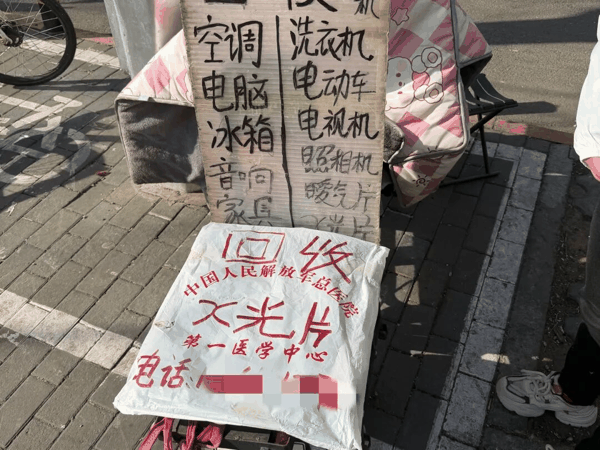 空调 洗衣机
电脑 电动车
冰箱 电视机
音响 照相机
家具 暧气片
X光片
回收
中国人民解放军总医院
X光片
第一医学中心
电话: